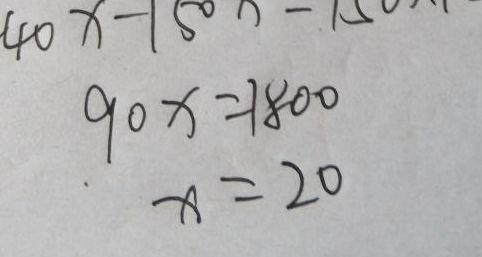 40x-150x-150x1
90x=1800
x=20